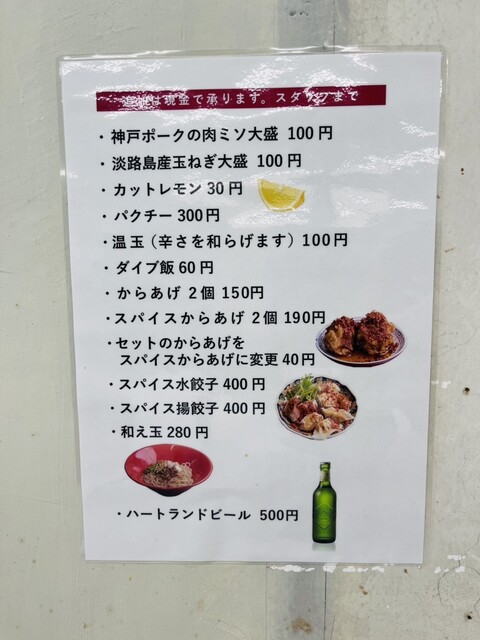 は現金で承ります。スタッフまで
・神戸ポークの肉ミソ大盛 100円
・淡路島産玉ねぎ大盛 100円
・カットレモン 30円
・パクチー 300円
・温玉（辛さを和らげます）100円
・ダイブ飯 60円
・からあげ 2個 150円
・スパイスからあげ 2個 190円
・セットのからあげを
スパイスからあげに変更 40円
・スパイス水餃子 400円
・スパイス揚餃子 400円
・和え玉 280円
・ハートランドビール 500円